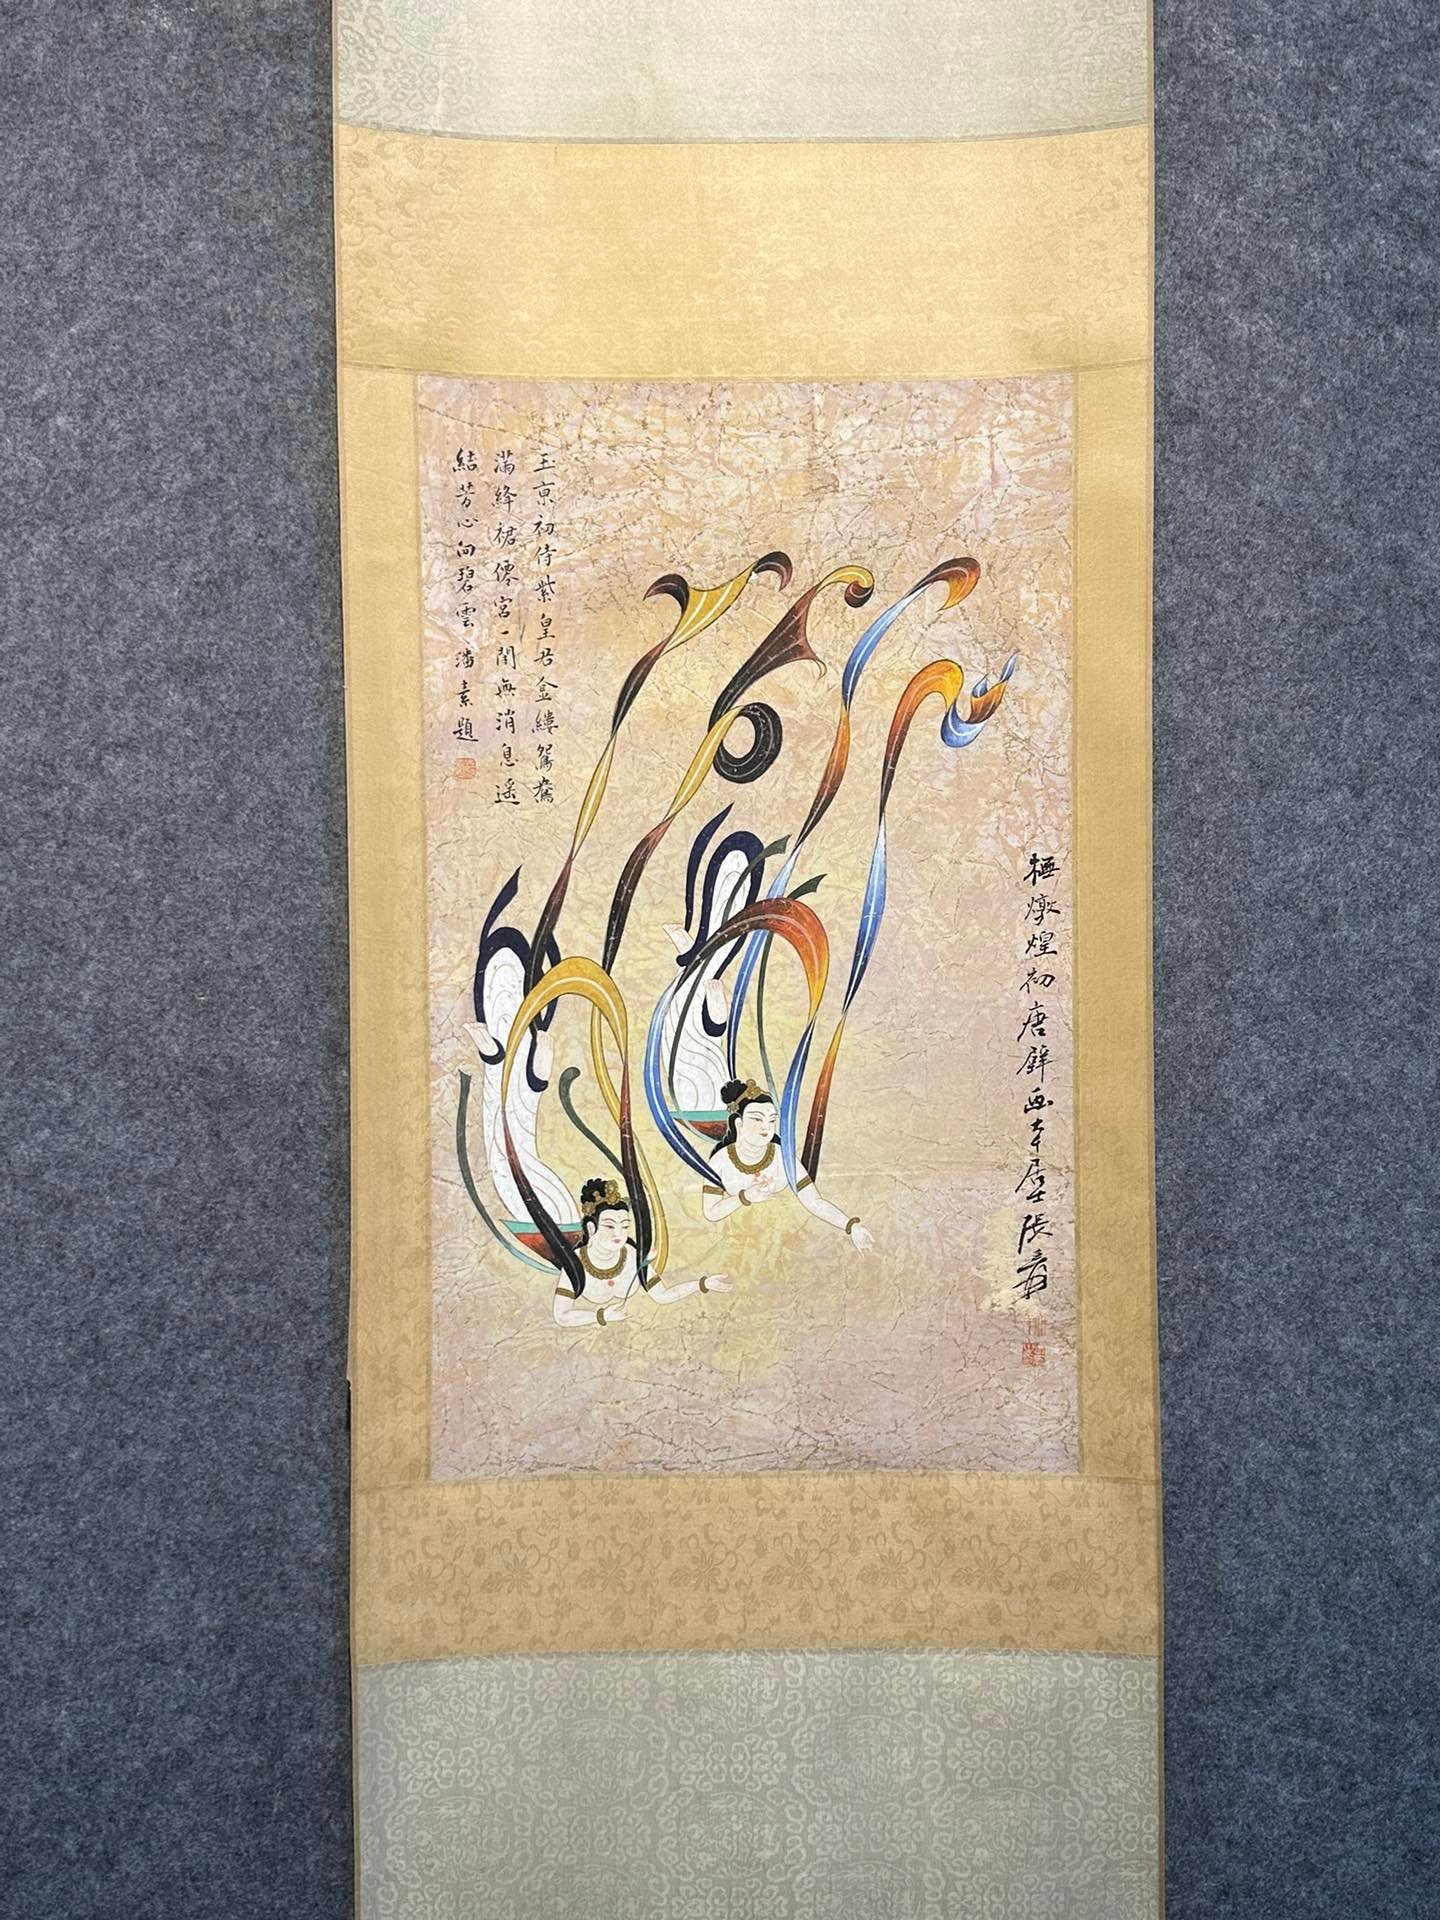 橅燉煌初唐壁画大千居士張爰
玉京初侍紫皇君金縷鴛鴦
滿絳裙僊宮一閉無消息遥
結芳心向碧雲潘素題